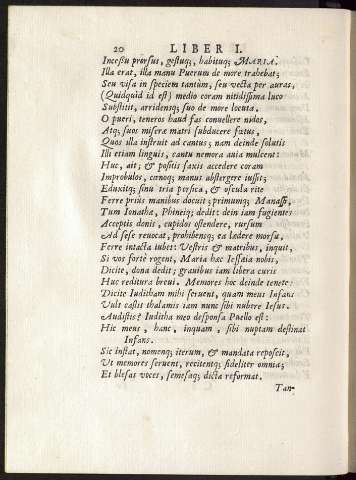 20 LIBER I.
Incessu prorsus, gestuq;, habituq; MARIA.
Illa erat, illa manu Puerum de more trahebat;
Seu visa in speciem tantum, seu vecta per auras,
(Quidquid id est) medio coram nitidissima luco
Substitit, arridensq; suo de more locuta,
O pueri, teneros haud fas convellere nidos,
Atq; suos miseræ matri subducere fœtus,
Quos illa instruit ad cantus; nam deinde solutis
Illi etiam linguis, cantu nemora auia mulcent:
Huc, ait; & positis saxis accedere coram
Improbulos, cœnoq; manus abstergere iussit;
Eduxitq; sinu tria persica, & oscula rite
Ferre prius manibus docuit; primumq; Manassi,
Tum Ionathæ, Phineiq; dedit: dein iam fugientes
Acceptis donis, cupidos ostendere, rursum
Ad sese reuocat, prohibensq; ea lædere morsu,
Ferre intacta iubet: Vestris & matribus, inquit,
Si vos fortè rogent, Maria hæc Iessæia nobis,
Dicite, dona dedit; grauibus iam libera curis
Huc reditura breui. Memores hoc deinde tenete:
Dicite Iuditham mihi seruent, quam meus Infans
Vult castis thalamis iam nunc sibi nubere Iesus.
Audistis? Iuditha meo desponsa Puello est:
Hic meus, hanc, inquam, sibi nuptam destinat
Infans.
Sic instat, nomenq; iterum, & mandata reposcit,
Vt memores seruent, recitentq; fideliter omnia;
Et blesas voces, semesaq; dicta reformat.
Tan-